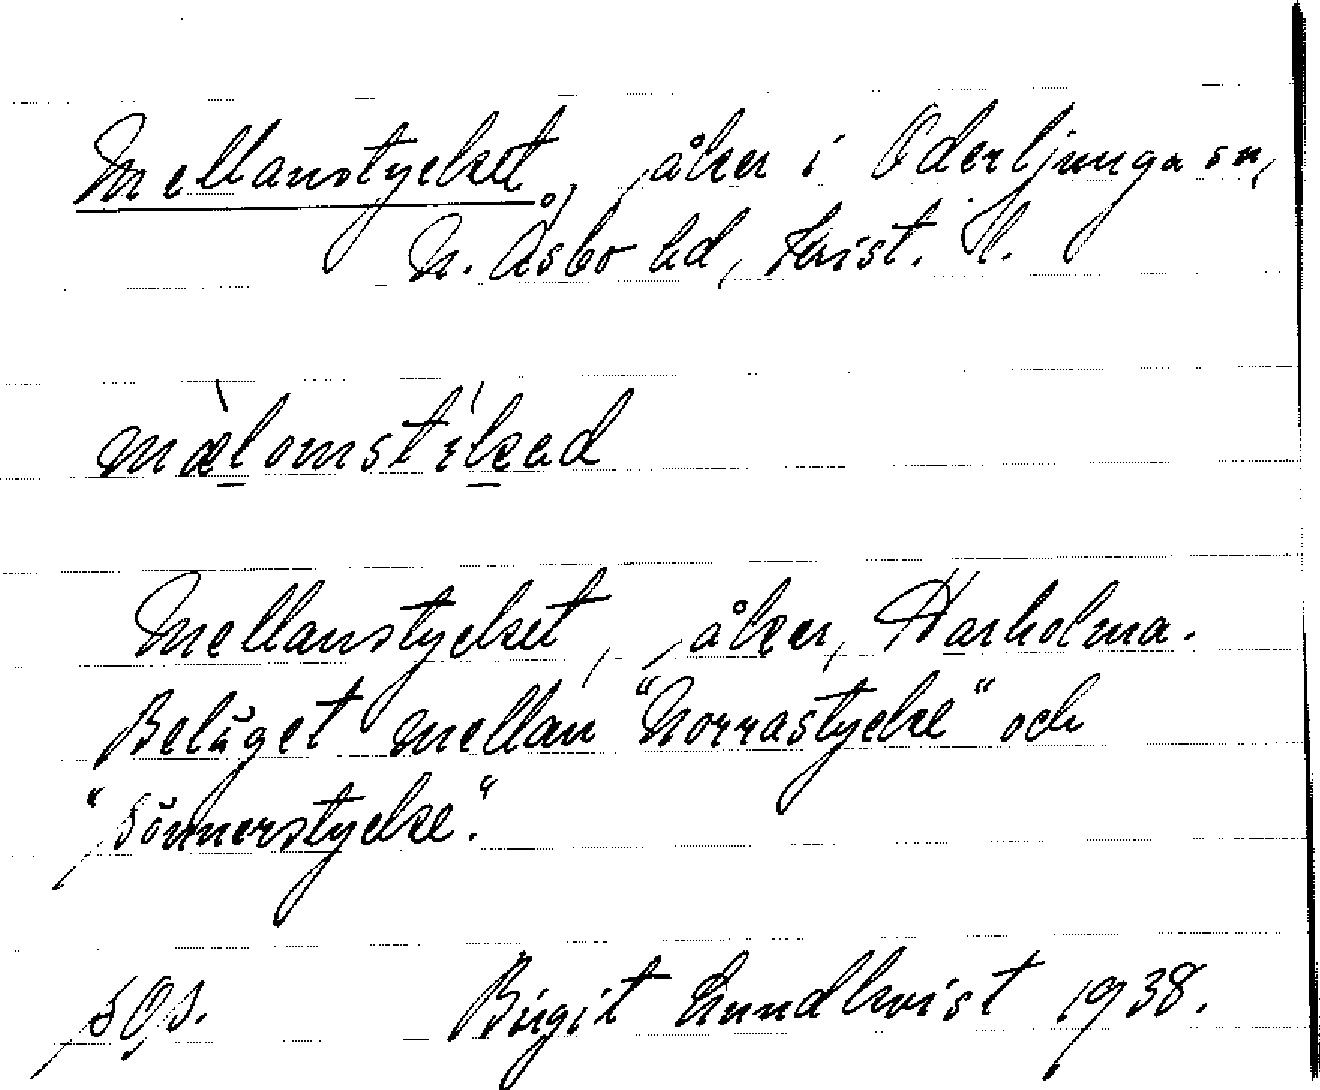 Mellanstycket, åker i Oderljunga sn,
N. Åsbo hd, Krist. l.
mælomstikad
Mellanstycket, åker, Harholma.
Beläget mellan "Norrastycke" och
"Sönnerstycke".
SOS. Birgit Lundkvist 1938.